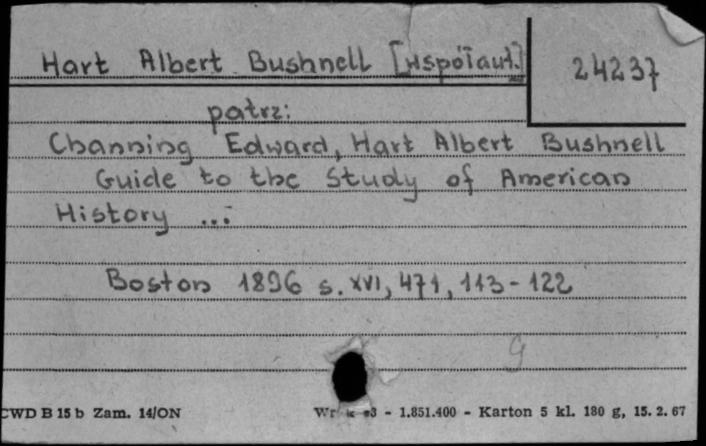 Hart Albert Bushnell [współaut.]
24237
patrz:
Channing Edward, Hart Albert Bushnell
Guide to the Study of American
History ...
Boston 1896 s. XVI, 471, 113-122
g
CWD B 15 b Zam. 14/ON
- 1.851.400 - Karton 5 kl. 180 g, 15. 2. 67